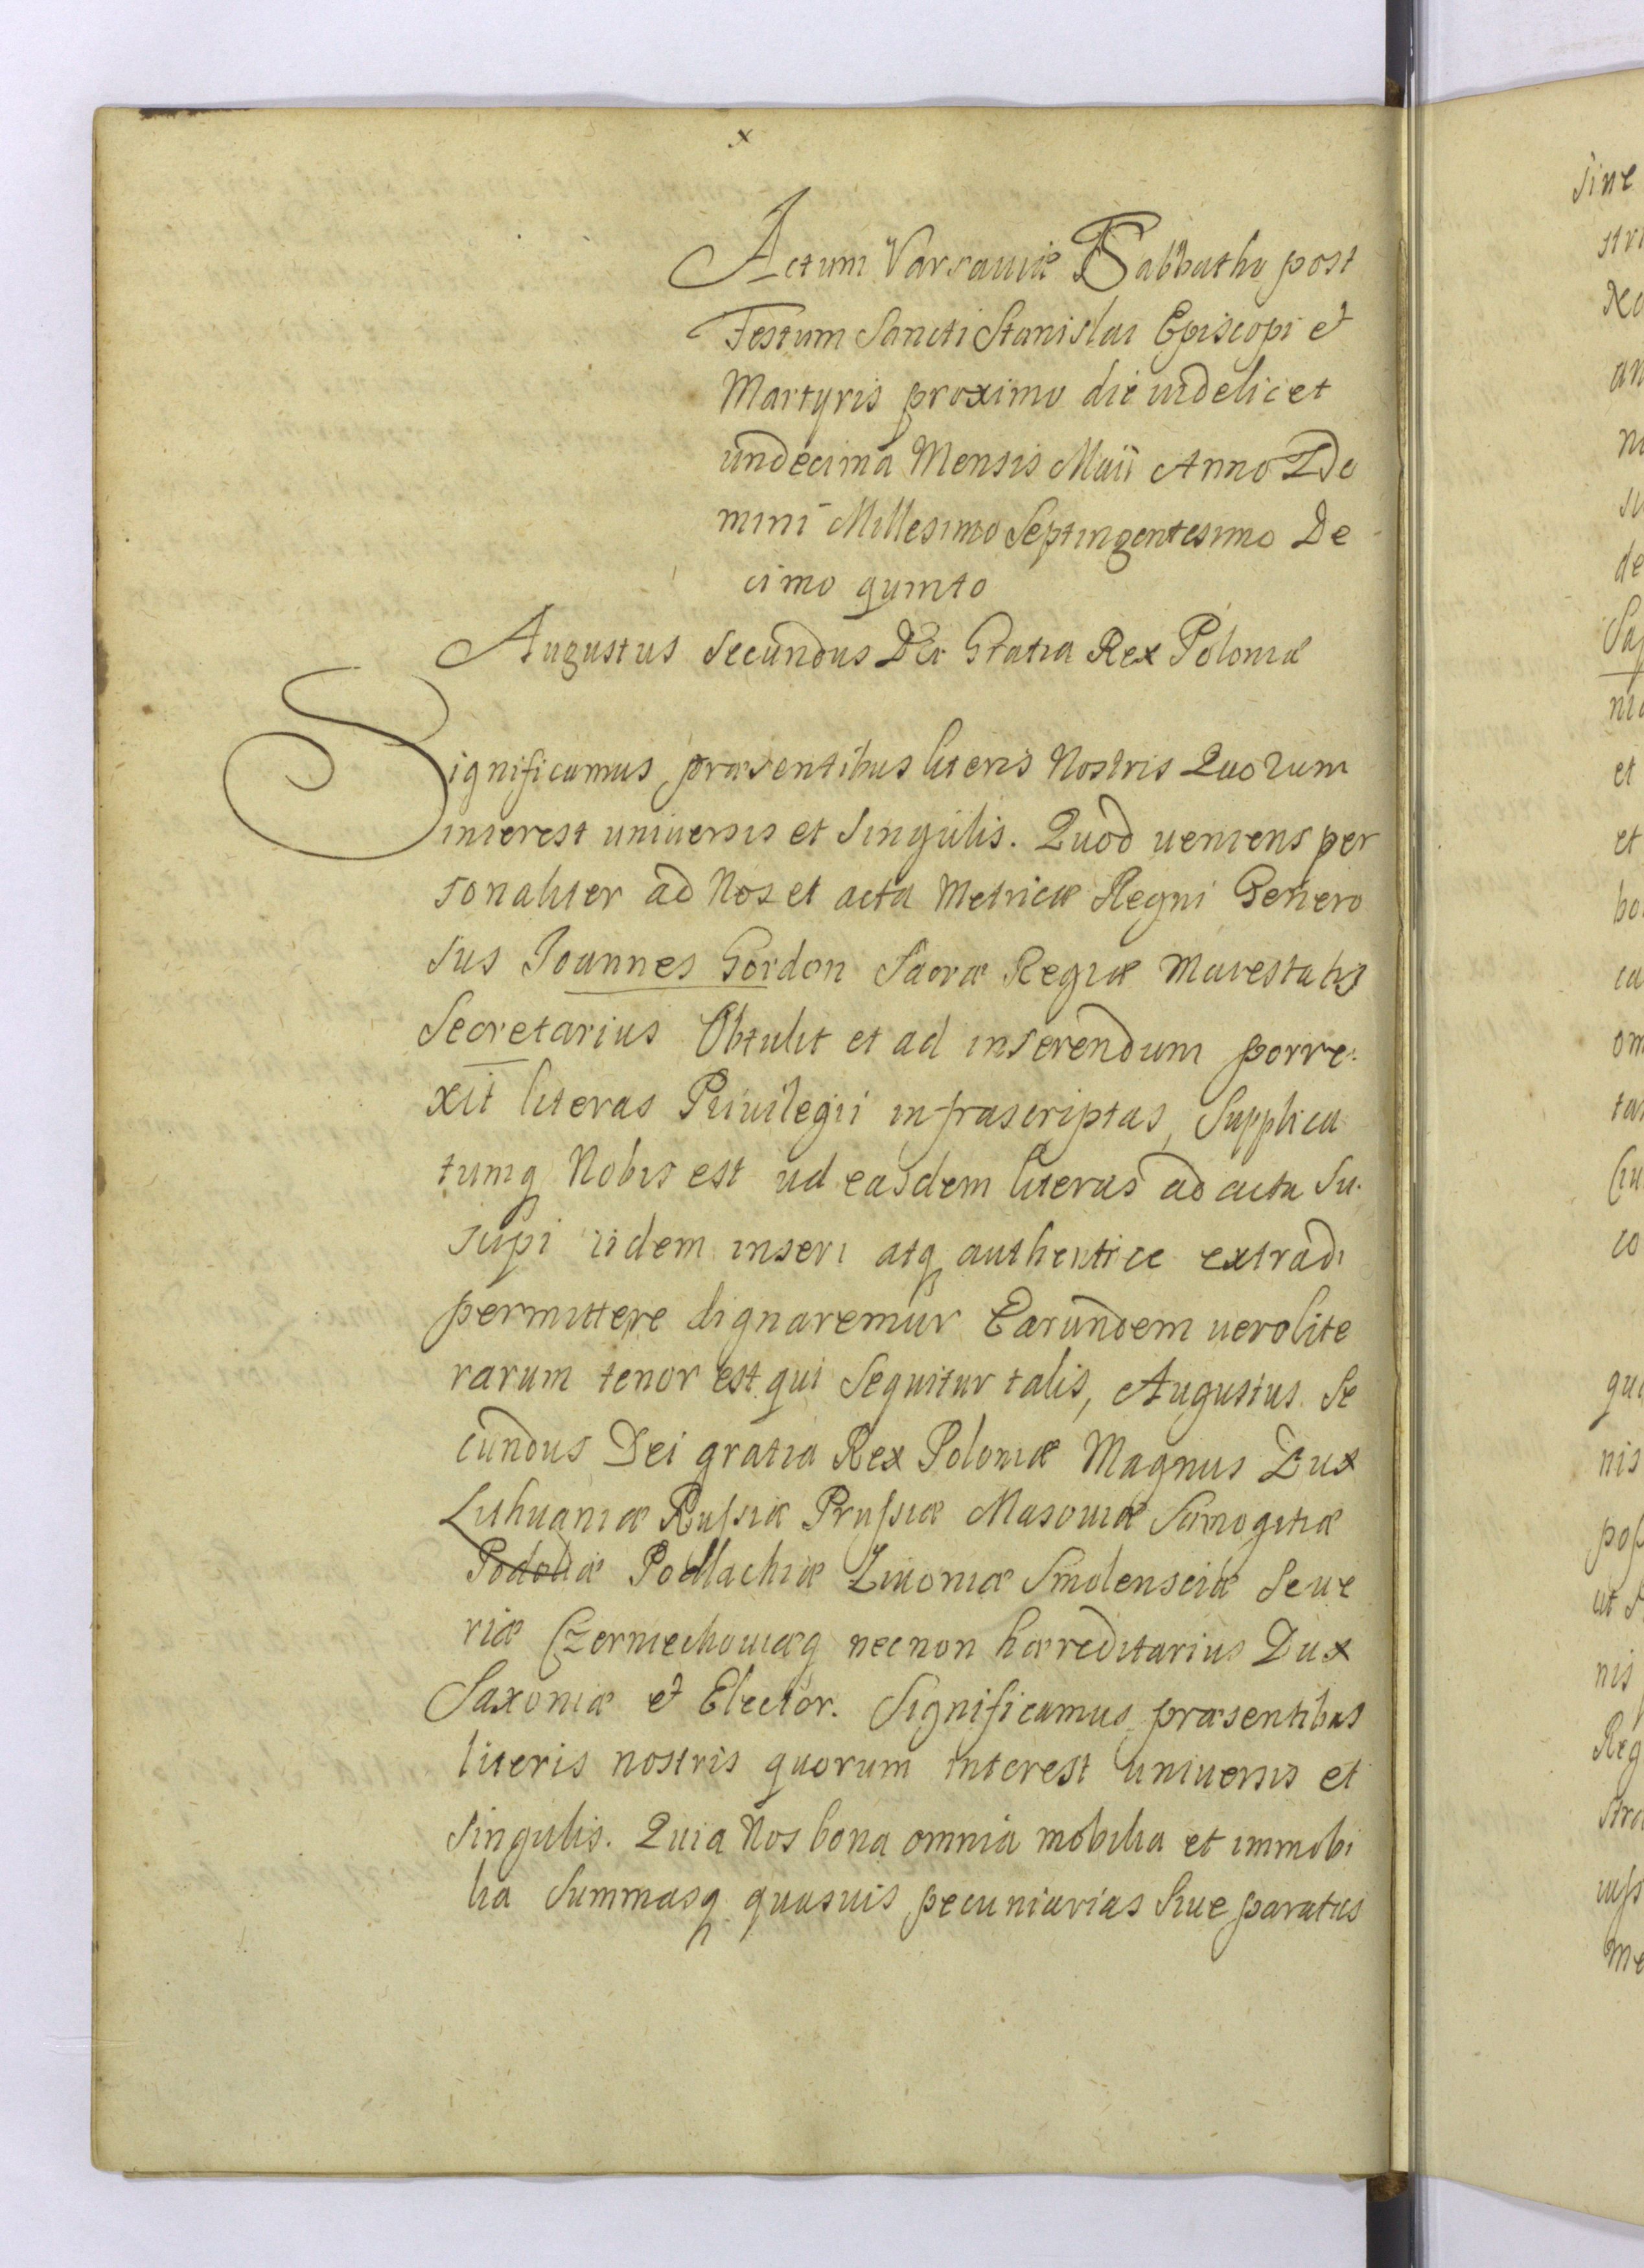 x
Actum Varsaviæ Sabbatho post
Festum Sancti Stanislai Episcopi et
Martyris proximo die videlicet
undecima Mensis Maii Anno Do
mini Millesimo Septingentesimo De
cimo quinto
Augustus Secundus Dei Gratia Rex Poloniæ
Significamus præsentibus literis Nostris Quorum
interest universis et singulis. Quod veniens per
sonaliter ad Nos et acta Metricæ Regni Genero
sus Joannes Gordon Sacræ Regiæ Maiestatis
Secretarius Obtulit et ad inserendum porre:
xit literas Privilegii infrascriptas, Supplica
tumq Nobis est ud easdem literas ad acta Su.
scipi iidem inseri atq authentice extradi
permittere dignaremur Earundem vero lite
rarum tenor est qui sequitur talis, Augustus Se
cundus Dei gratia Rex Poloniæ Magnus Dux
Lithuaniæ Russiæ Prussiæ Masoviæ Samogitiæ
Podoliæ Podlachiæ Livoniæ Smolensciæ Seve
riæ Czerniechoviæq necnon hæreditarius Dux
Saxoniæ et Elector. Significamus præsentibus
literis nostris quorum interest universis et
singulis. Quia Nos bona omnia mobilia et immobi
lia Summasq quasvis pecuniarias sive paratas